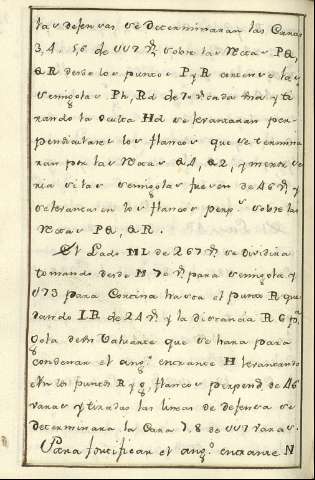 las defensas se Determinaran las Caras
3,4. 5,6 de 117 vs. sobre las Rectas PQ,
QR desde los puntos P y R crecense las
semigolas Ph, Rd de 70 vs. cada una y ti
rando la oculta Hd se levantaran per-
pendiculares los flancos que se termina
ran por las Rectas Q4, Q2, y menor se
ria si las semigolas fuesen de 46 vs. y
se levantasen los flancos perps. sobre las
Rectas PQ, QR.
El Lado ML de 267 vs. se dividira
tomando desde M 70 vs. para semigola y
173 para Cortina hasta el punto R que
dando IR de 24 vs. y la distancia R G pa.
Gola deste Valuarte que se hara para
condenar el ango. entrante H levantando
en los puntos R y g, flancos perpend. de 46
varas y tiradas las lineas de defensa se
determinara la Cara 7, 8 de 117 Varas.
Para fortificar el ango. entrante N